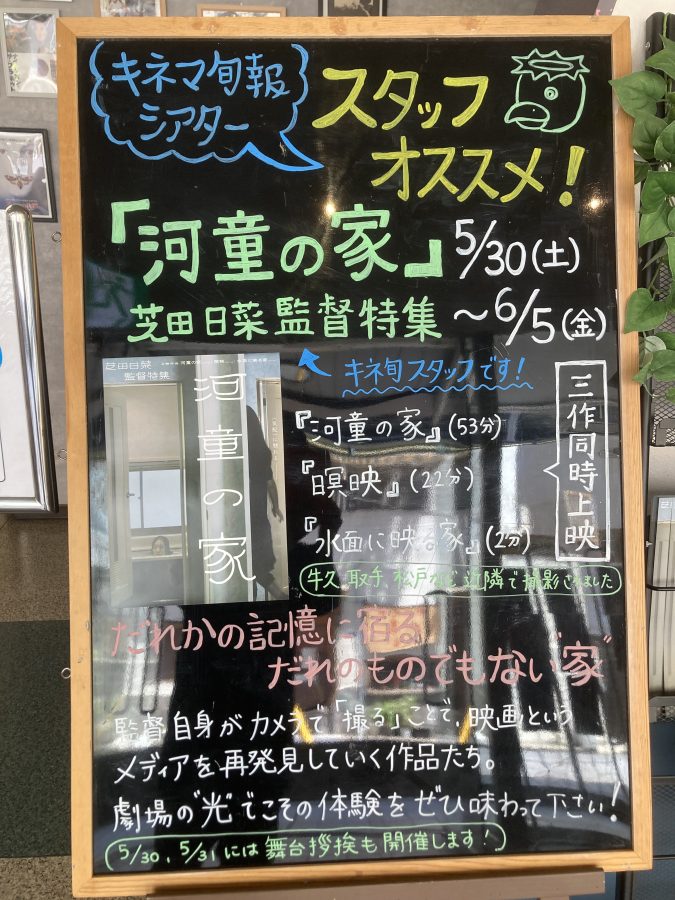 キネマ旬報
シアター
スタッフ
オススメ!
『河童の家』
5/30(土)
芝田日菜監督特集
～6/5(金)
キネ旬スタッフです!
芝田日菜
監督特集
河童の家
『河童の家』(53分)
『瞑映』(22分)
『水面に映る家』(2分)
三作同時上映
牛久、取手、松戸など近隣で撮影されました
だれかの記憶に宿る
だれのものでもない“家”
監督自身がカメラで「撮る」ことで、映画という
メディアを再発見していく作品たち。
劇場の“光”でこその体験をぜひ味わって下さい!
5/30、5/31には舞台挨拶も開催します!